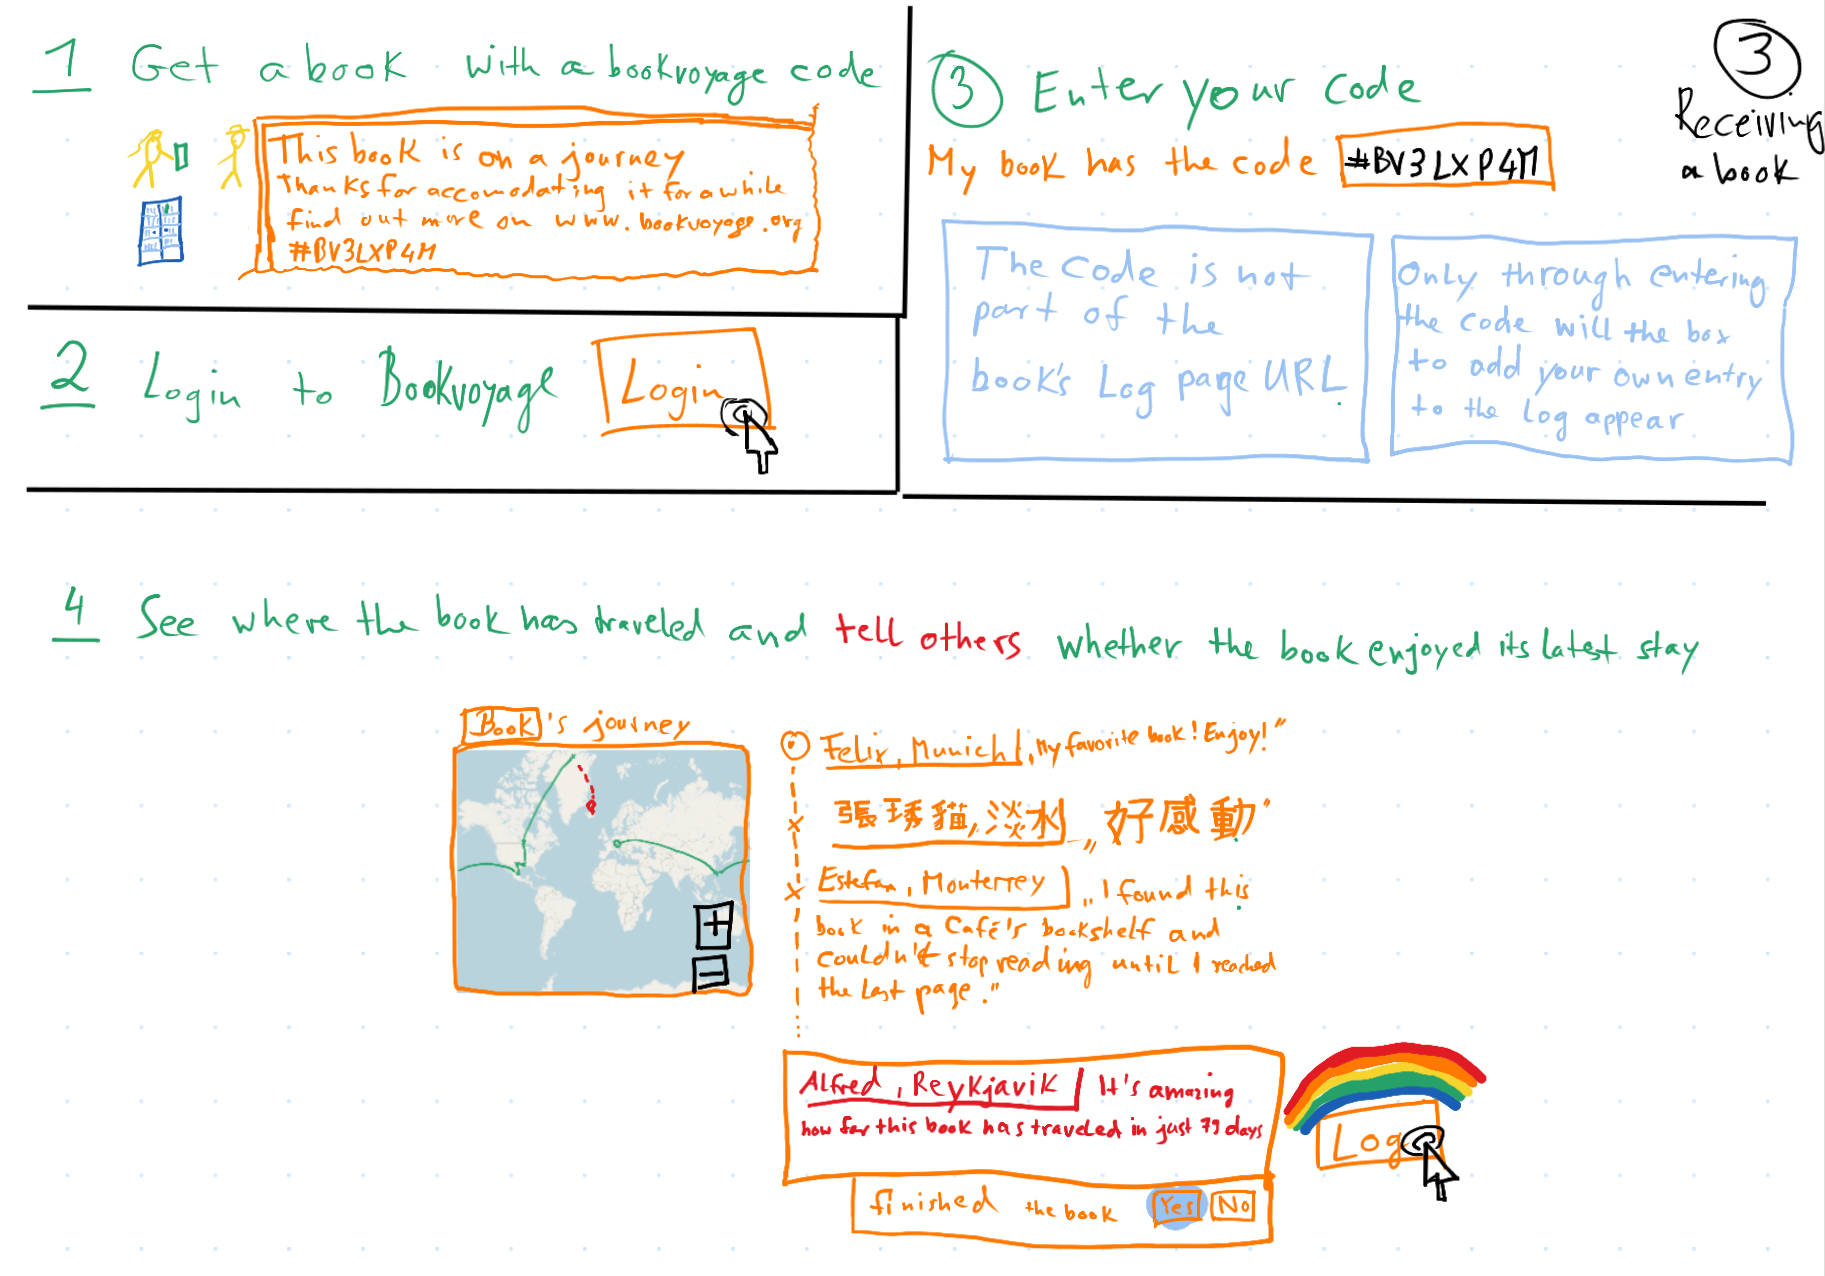 1 Get a book with a bookvoyage code
This book is on a journey
Thanks for accomodating it for a while
find out more on www.bookvoyage.org
#BV3LXP4M
2 Login to Bookvoyage
Login
3 Enter your code
My book has the code #BV3LXP4M
The Code is not
part of the
book's Log page URL.
Only through entering
the code will the box
to add your own entry
to the Log appear
3
Receiving
a book
4 See where the book has traveled and tell others whether the book enjoyed its latest stay
Book's journey
+
−
Felix, Munich „My favorite book! Enjoy!”
張琇貓, 淡水 „好感動”
Estefan, Monterrey „I found this
book in a Café's bookshelf and
couldn't stop reading until I reached
the last page.”
Alfred, Reykjavik It's amazing
how far this book has traveled in just 79 days
finished the book Yes No
Log